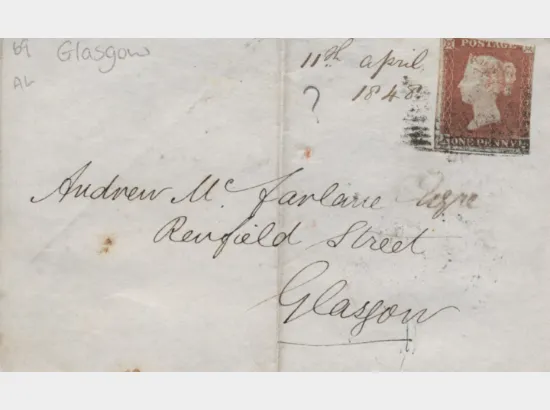 69 Glasgow
AL
11th april
?
1848.
POSTAGE
ONE PENNY
Andrew Mc Farlane Esqre
Renfield Street
Glasgow